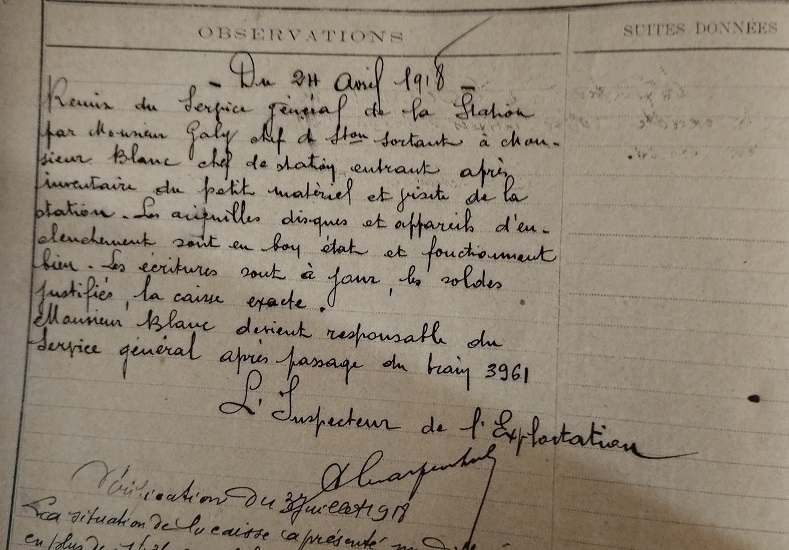 OBSERVATIONS
SUITES DONNÉES
- Du 24 Avril 1918 -
Remis du Service général de la Station
par Monsieur Galy chef de Ston sortant à Mon-
sieur Blanc chef de station entrant après
inventaire du petit matériel et visite de la
station. Les aiguilles disques et appareils d'en-
clenchement sont en bon état et fonctionnent
bien. Les écritures sont à jour, les soldes
justifiés, la caisse exacte.
Monsieur Blanc devient responsable du
Service général après passage du train 3961
L'Inspecteur de l'Exploitation
Vérification du juillet 1918
La situation de la caisse a présenté
en plus de